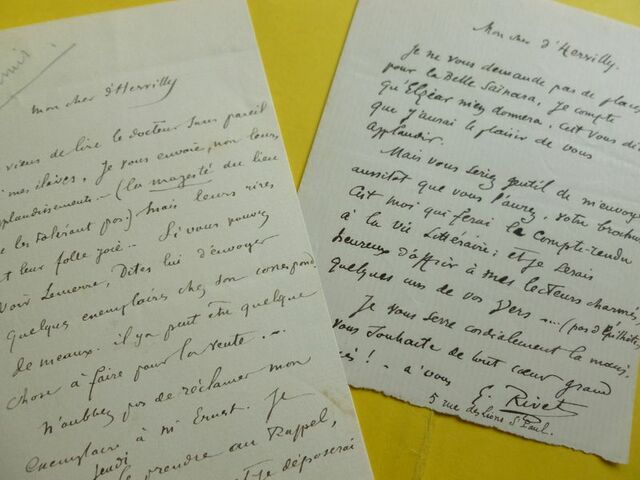 mon cher d'Hervilly
viens de lire le docteur Sans pareil
mes élèves. Je vous envoie, non leurs
applaudissements – (la majesté du lieu
les tolérant pas) mais leurs rires
et leur folle joie .. Si vous pouvez
voir Lemerre, Dites lui d'envoyer
quelques exemplaires chez son correspond
de meaux. il y a peut être quelque
chose à faire pour la vente ...
N'oubliez pas de réclamer mon
exemplaire à Mr Ernest. Je
jeudi
le prendre au Rappel,
et je déposerai
Mon cher d'Hervilly.
Je ne vous demande pas de plac
pour la Belle Saïnara, Je compte
qu' m'en donnera, C'est vous di
que j'aurai le plaisir de vous
applaudir.
Mais vous seriez gentil de m'envoye
aussitôt que vous l'aurez, votre brochu
C'est moi qui ferai le Compte-rendu
à la vie Littéraire ; et je serais
heureux d'offrir à mes lecteurs charmés,
quelques uns de vos Vers ... (pas d'
Je vous serre cordialement la main,
vous souhaite de tout cœur grand
à vous
G. Rivet
5 rue des lions St Paul.